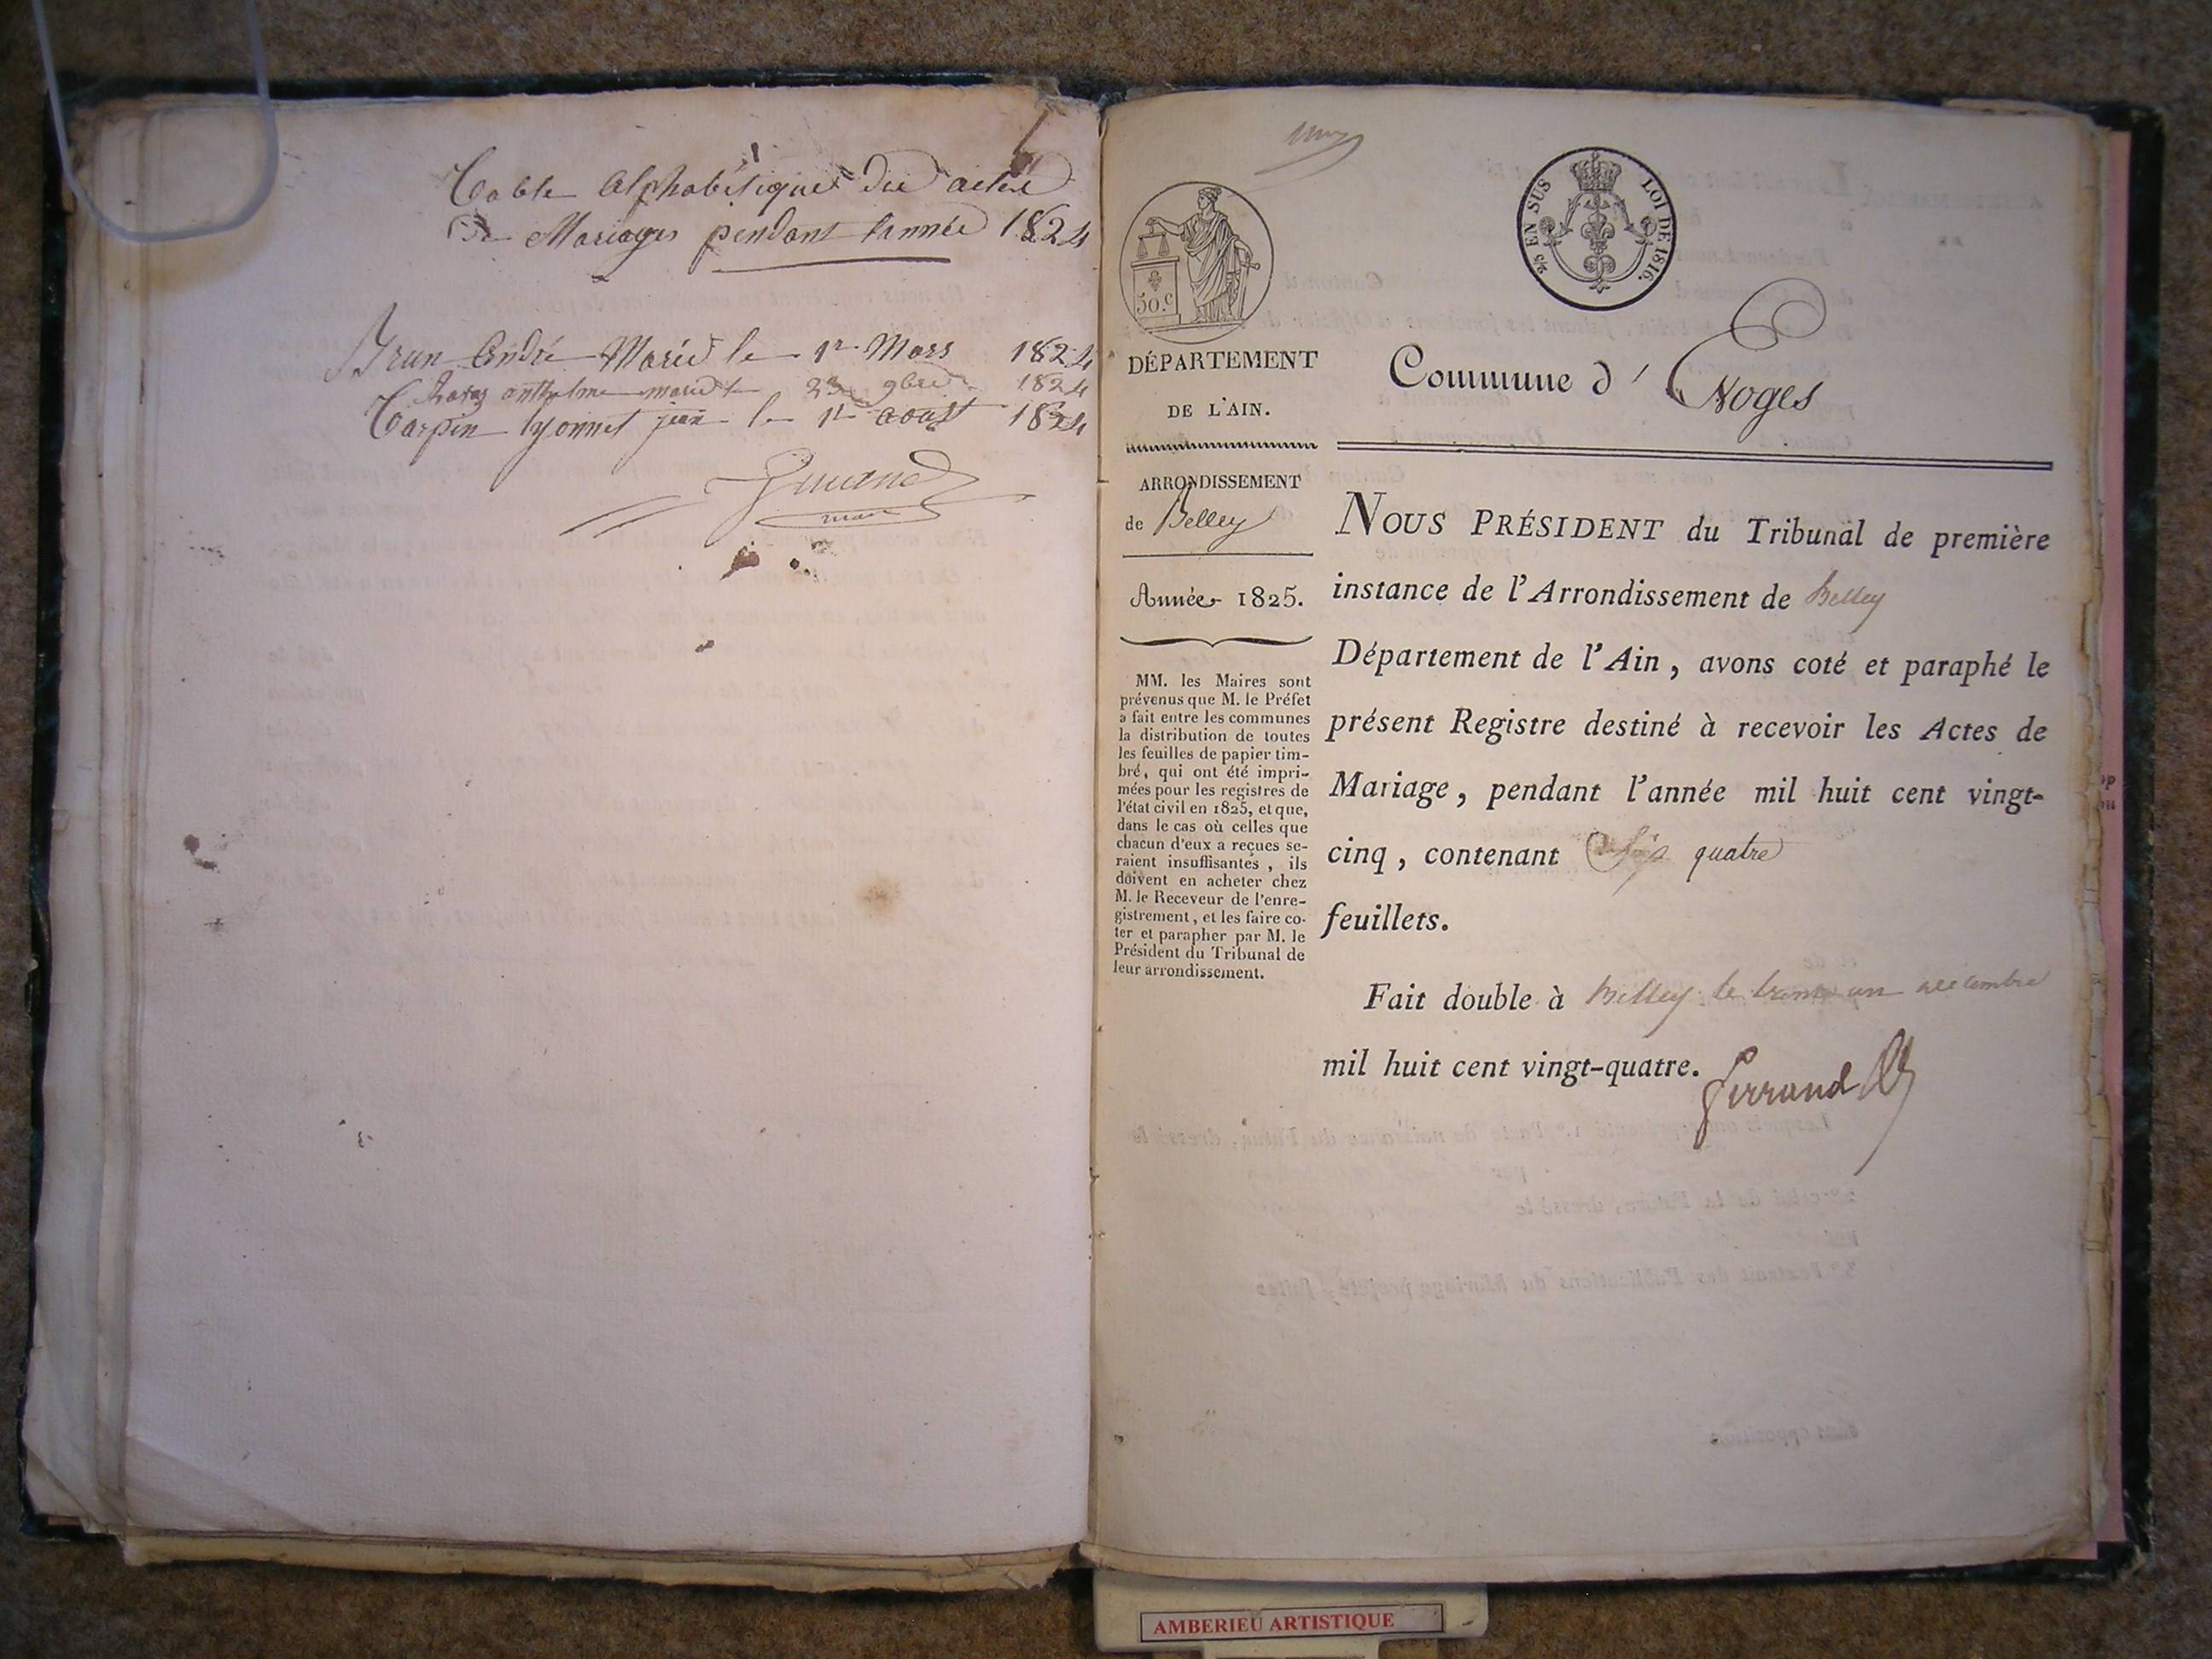 Table Alphabétique des actes
De Mariages pendant l'année 1824
Brun André Marié le 1er Mars 1824
anthelme marié le 23 9bre 1824
Carpin lyonnet jean le 1er aoust 1824
maire
un
50.c
2/5 EN SUS LOI DE 1816.
DÉPARTEMENT
DE L'AIN.
ARRONDISSEMENT
de Belley
Année 1825.
MM. les Maires sont
prévenus que M. le Préfet
a fait entre les communes
la distribution de toutes
les feuilles de papier tim-
bré, qui ont été impri-
mées pour les registres de
l'état civil en 1825, et que,
dans le cas où celles que
chacun d'eux a reçues se-
raient insuffisantes, ils
doivent en acheter chez
M. le Receveur de l'enre-
gistrement, et les faire co-
ter et parapher par M. le
Président du Tribunal de
leur arrondissement.
Commune d' Enoges
NOUS PRÉSIDENT du Tribunal de première
instance de l'Arrondissement de Belley
Département de l'Ain, avons coté et paraphé le
présent Registre destiné à recevoir les Actes de
Mariage, pendant l'année mil huit cent vingt-
cinq, contenant quatre
feuillets.
Fait double à Belley le trente un decembre
mil huit cent vingt-quatre.
AMBERIEU ARTISTIQUE